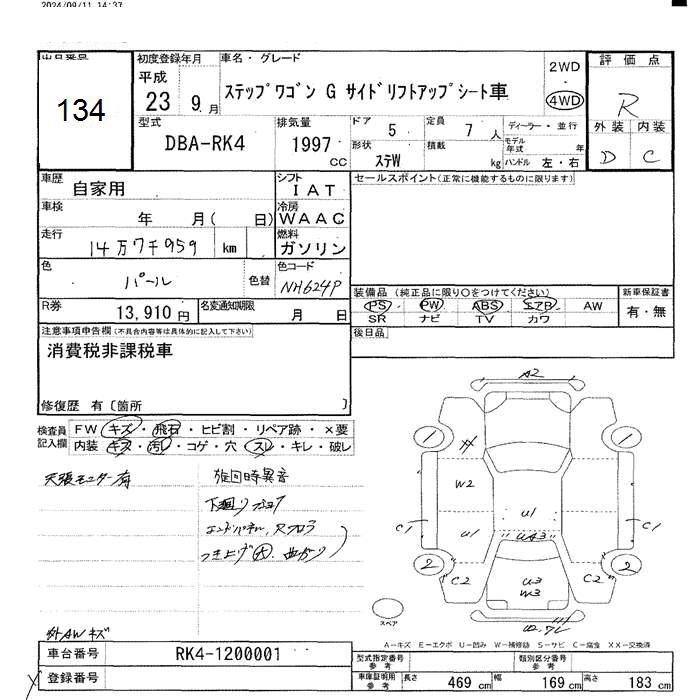 2024/09/11 14:37
出品番号
134
初度登録年月
平成
23 9 月
車名・グレード
ステップワゴン G サイドリフトアップシート車
2WD
4WD
評価点
R
外装 内装
D C
型式
DBA-RK4
排気量
1997 CC
ドア 5
定員 7 人
形状 ステW
積載 kg
ディーラー・並行
モデル年式 年
ハンドル 左・右
車歴
自家用
シフト
IAT
車検
年 月( 日)
冷房
WAAC
走行
14万7千959 km
燃料
ガソリン
色
パール
色替
色コード
NH624P
R券
13,910 円
名変通知期限
月 日
セールスポイント(正常に機能するものに限ります)
装備品 (純正品に限り○をつけてください)
PS PW ABS エアB AW
SR ナビ TV カワ
新車保証書
有・無
後日品
注意事項申告欄(不具合内容等は具体的に記入して下さい)
消費税非課税車
修復歴 有〔箇所 〕
検査員記入欄
FW キズ・飛石・ヒビ割・リペア跡・×要
内装 キズ・汚レ・コゲ・穴・スレ・キレ・破レ
天張モニター有
旋回時異音
下廻り
エンドパネル、Rフロア
つき上げ大、曲がり
外AWキズ
A2
1 1
W2
U1 U1
UA3
C1 C1
2 2
C2 C2
U3
W3
スペア
A-キズ E-エクボ U-凹み W-補修跡 S-サビ C-腐食 XX-交換済
車台番号
RK4-1200001
登録番号
型式指定番号 参考
類別区分番号 参考
車庫証明用 参考
長さ 469 cm 幅 169 cm 高さ 183 cm